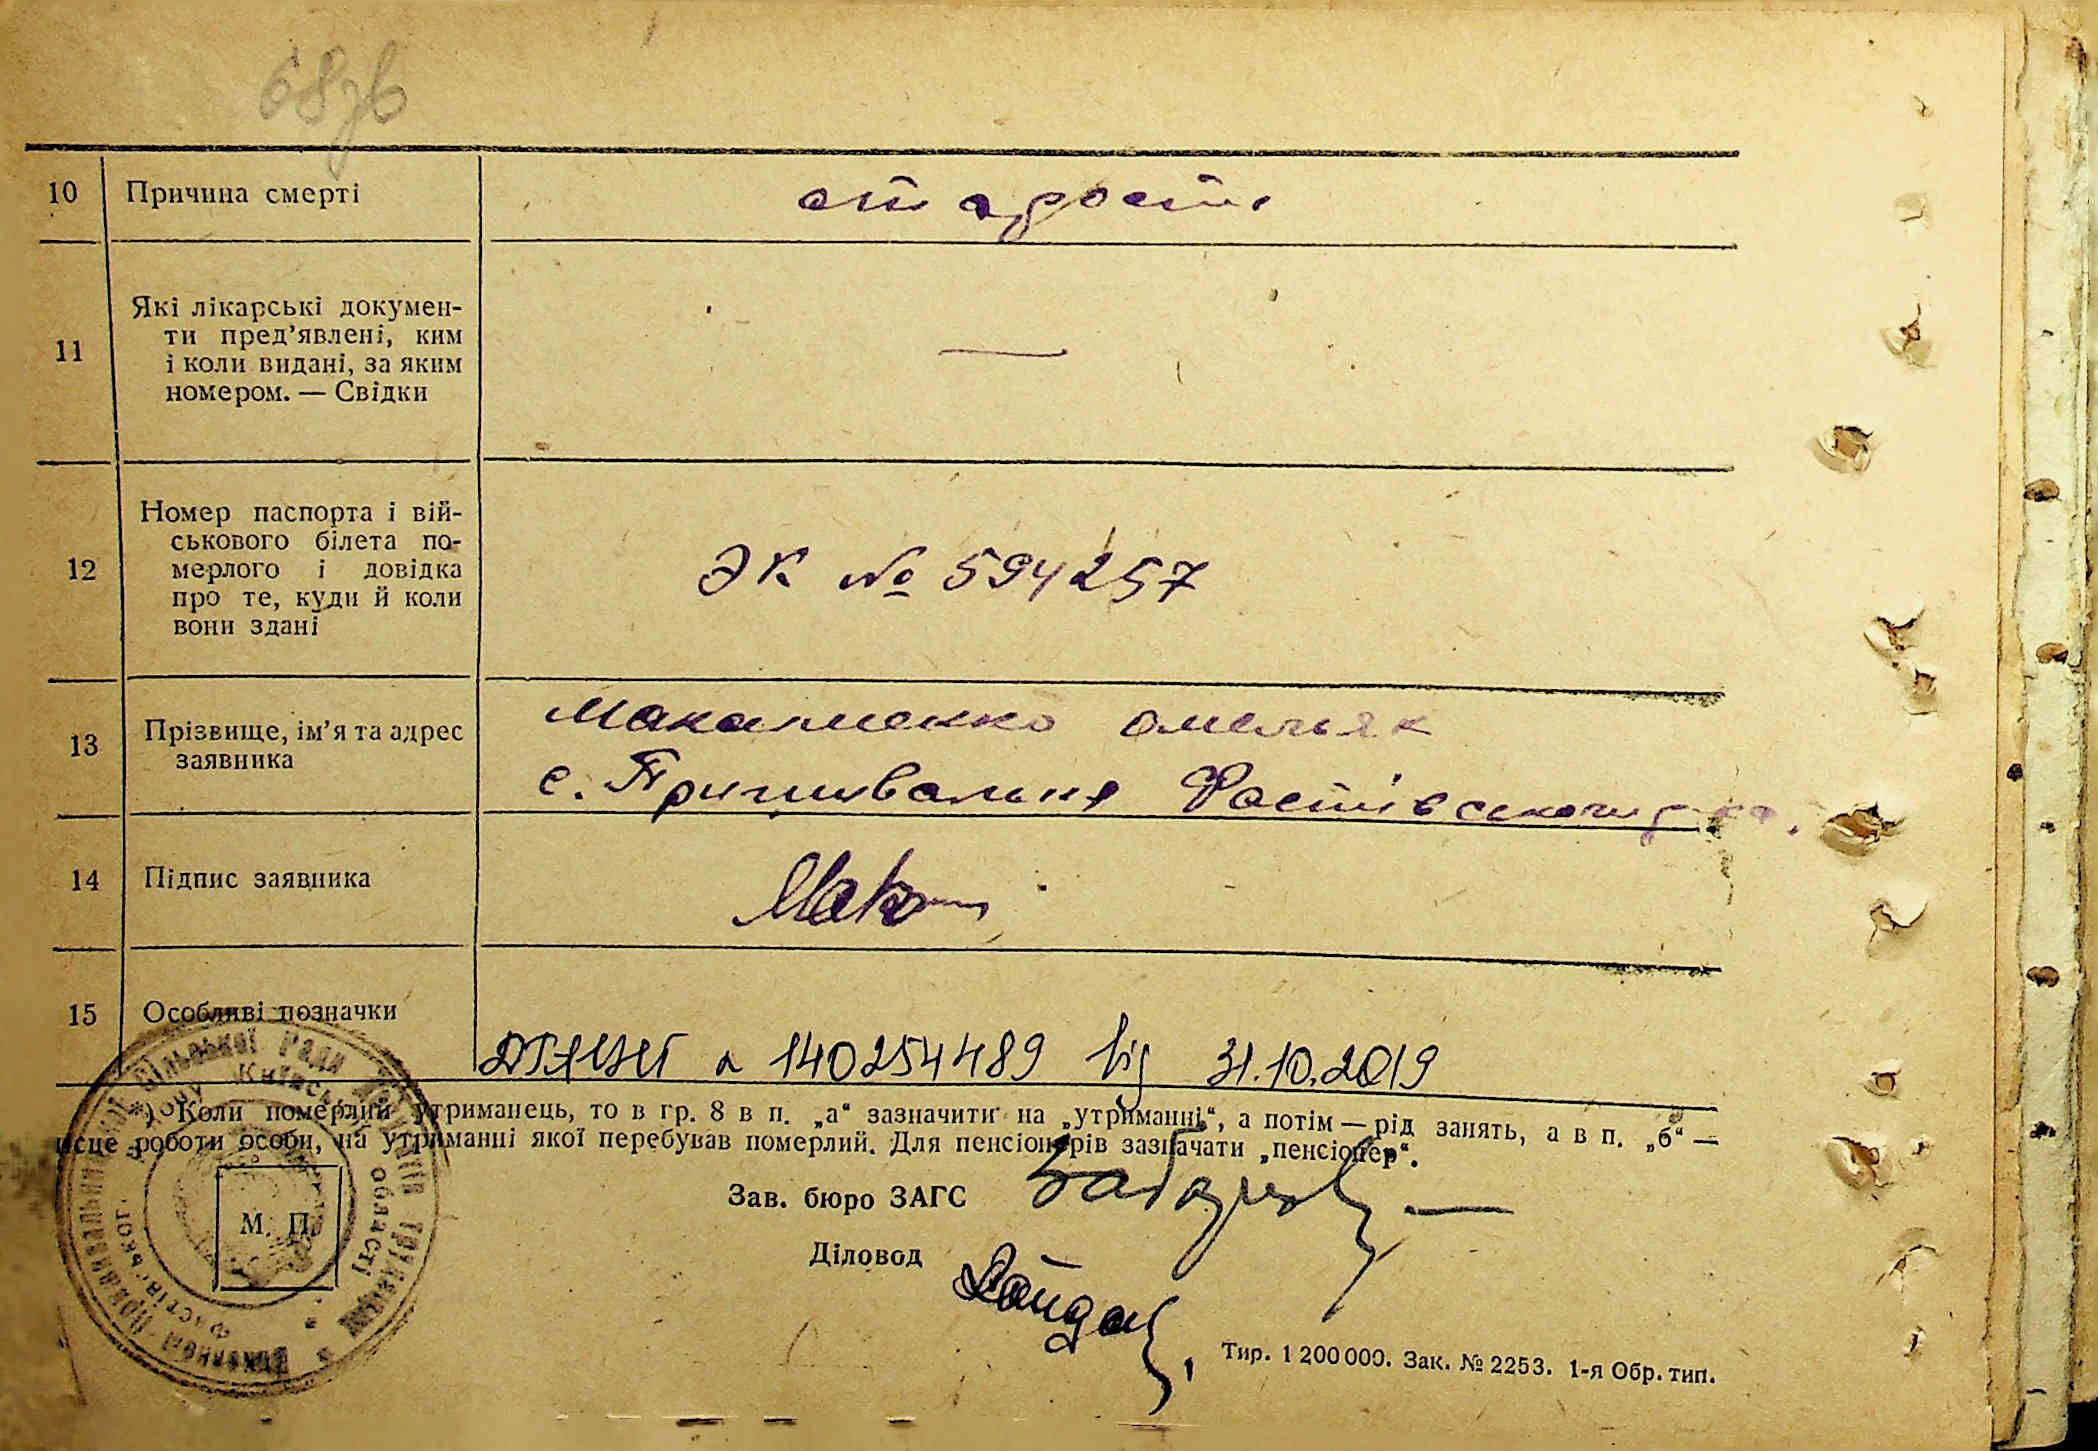 68зв
10 Причина смерті старость
11 Які лікарські докумен-
ти пред’явлені, ким
і коли видані, за яким
номером. — Свідки —
12 Номер паспорта і вій-
ськового білета по-
мерлого і довідка
про те, куди й коли
вони здані
ЭК № 594257
13 Прізвище, ім’я та адрес
заявника
Макаменко Омельян
с. Пришивальня Фастівського р-на.
14 Підпис заявника
15 Особливі позначки
140254489 від 31.10.2019
*) Коли померлий утриманець, то в гр. 8 в п. „а“ зазначити на „утриманні“, а потім — рід занять, а в п. „б“ —
місце роботи особи, на утриманні якої перебував померлий. Для пенсіонерів зазначати „пенсіонер“.
Зав. бюро ЗАГС
Діловод
М. П.
Тир. 1 200 000. Зак. № 2253. 1-я Обр. тип.